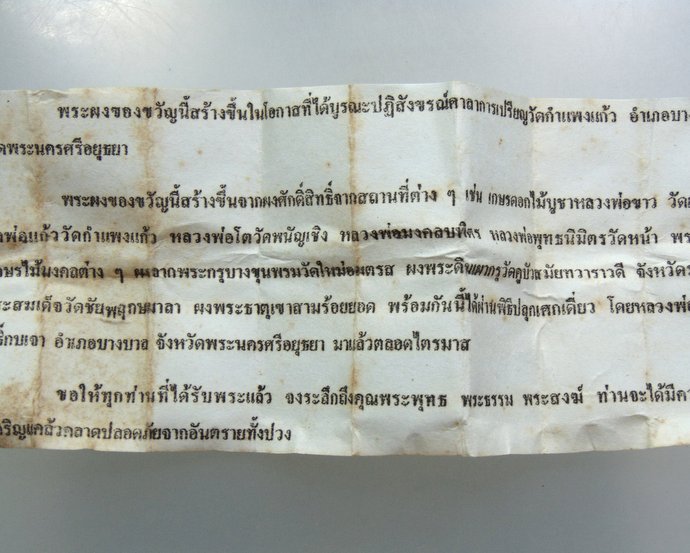 พระผงของขวัญนี้สร้างขึ้นในโอกาสที่ได้บูรณะปฏิสังขรณ์ศาลาการเปรียญวัดกำแพงแก้ว อำเภอบาง
ดพระนครศรีอยุธยา
พระผงของขวัญนี้สร้างขึ้นจากผงศักดิ์สิทธิ์จากสถานที่ต่าง ๆ เช่น เกษรดอกไม้บูชาหลวงพ่อขาว วัด
งพ่อแก้ววัดกำแพงแก้ว หลวงพ่อโตวัดพนัญเชิง หลวงพ่อมงคลบพิตร หลวงพ่อพุทธนิมิตรวัดหน้า พร
กษรไม้มงคลต่าง ๆ ผงจากพระกรุบางขุนพรมวัดใหม่อมตรส ผงพระดินเผากรุวัดคูบัวสมัยทวาราวดี จังหวัดร
ะสมเด็จวัดชัยพฤกษมาลา ผงพระธาตุเขาสามร้อยยอด พร้อมกันนี้ได้ผ่านพิธีปลุกเศกเดี่ยว โดยหลวงพ่อ
กบเจา อำเภอบางบาล จังหวัดพระนครศรีอยุธยา มาแล้วตลอดไตรมาส
ขอให้ทุกท่านที่ได้รับพระแล้ว จงระลึกถึงคุณพระพุทธ พระธรรม พระสงฆ์ ท่านจะได้มีคว
จริญแคล้วคลาดปลอดภัยจากอันตรายทั้งปวง